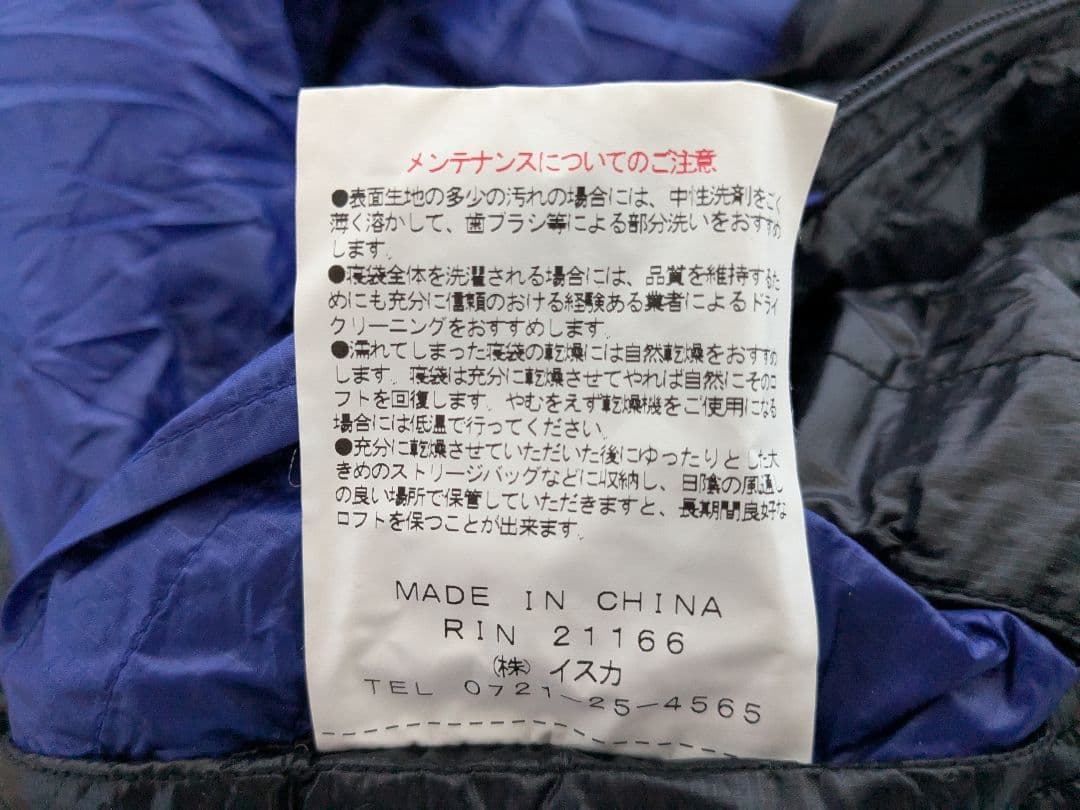 メンテナンスについてのご注意
●表面生地の多少の汚れの場合には、中性洗剤をごく
薄く溶かして、歯ブラシ等による部分洗いをおすすめ
します。
●寝袋全体を洗濯される場合には、品質を維持するた
めにも充分に信頼のおける経験ある業者によるドライ
クリーニングをおすすめします。
●濡れてしまった寝袋の乾燥には自然乾燥をおすすめ
します。寝袋は充分に乾燥させてやれば自然にそのロ
フトを回復します。やむをえず乾燥機をご使用になる
場合には低温で行ってください。
●充分に乾燥させていただいた後にゆったりとした大
きめのストリージバッグなどに収納し、日陰の風通し
の良い場所で保管していただきますと、長期間良好な
ロフトを保つことが出来ます。
MADE IN CHINA
RIN 21166
(株)イスカ
TEL 0721-25-4565